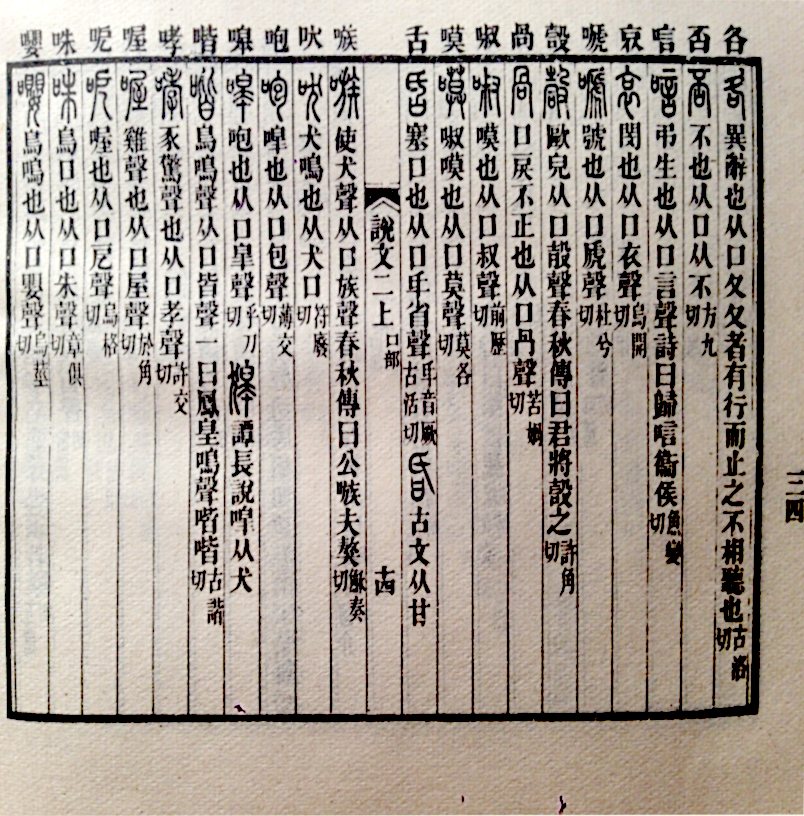 三四
各 各 異辭也从口夂夂者有行而止之不相聽也古洛切
否 否 不也从口从不方九切
唁 唁 弔生也从口言聲詩曰歸唁衞侯魚變切
哀 哀 閔也从口衣聲烏開切
嗁 嗁 號也从口虒聲杜兮切
嗀 嗀 歐皃从口㱿聲春秋傳曰君將嗀之許角切
咼 咼 口戾不正也从口冎聲苦媧切
㖡 㖡 嗼也从口叔聲前歷切
嗼 嗼 㖡嗼也从口莫聲莫各切
舌 昏 塞口也从口氒省聲氒音厥古活切 古文从甘
說文二上 口部 十四
嗾 嗾 使犬聲从口族聲春秋傳曰公嗾夫獒穌奏切
吠 吠 犬鳴也从犬口符廢切
咆 咆 嗥也从口包聲薄交切
嗥 嗥 咆也从口皋聲乎刀切 獋 譚長說嗥从犬
喈 喈 鳥鳴聲从口皆聲一曰鳳皇鳴聲喈喈古諧切
哮 哮 豕驚聲也从口孝聲許交切
喔 喔 雞聲也从口屋聲於角切
呝 呝 喔也从口戹聲烏格切
咮 咮 鳥口也从口朱聲章俱切
嚶 嚶 鳥鳴也从口嬰聲烏莖切